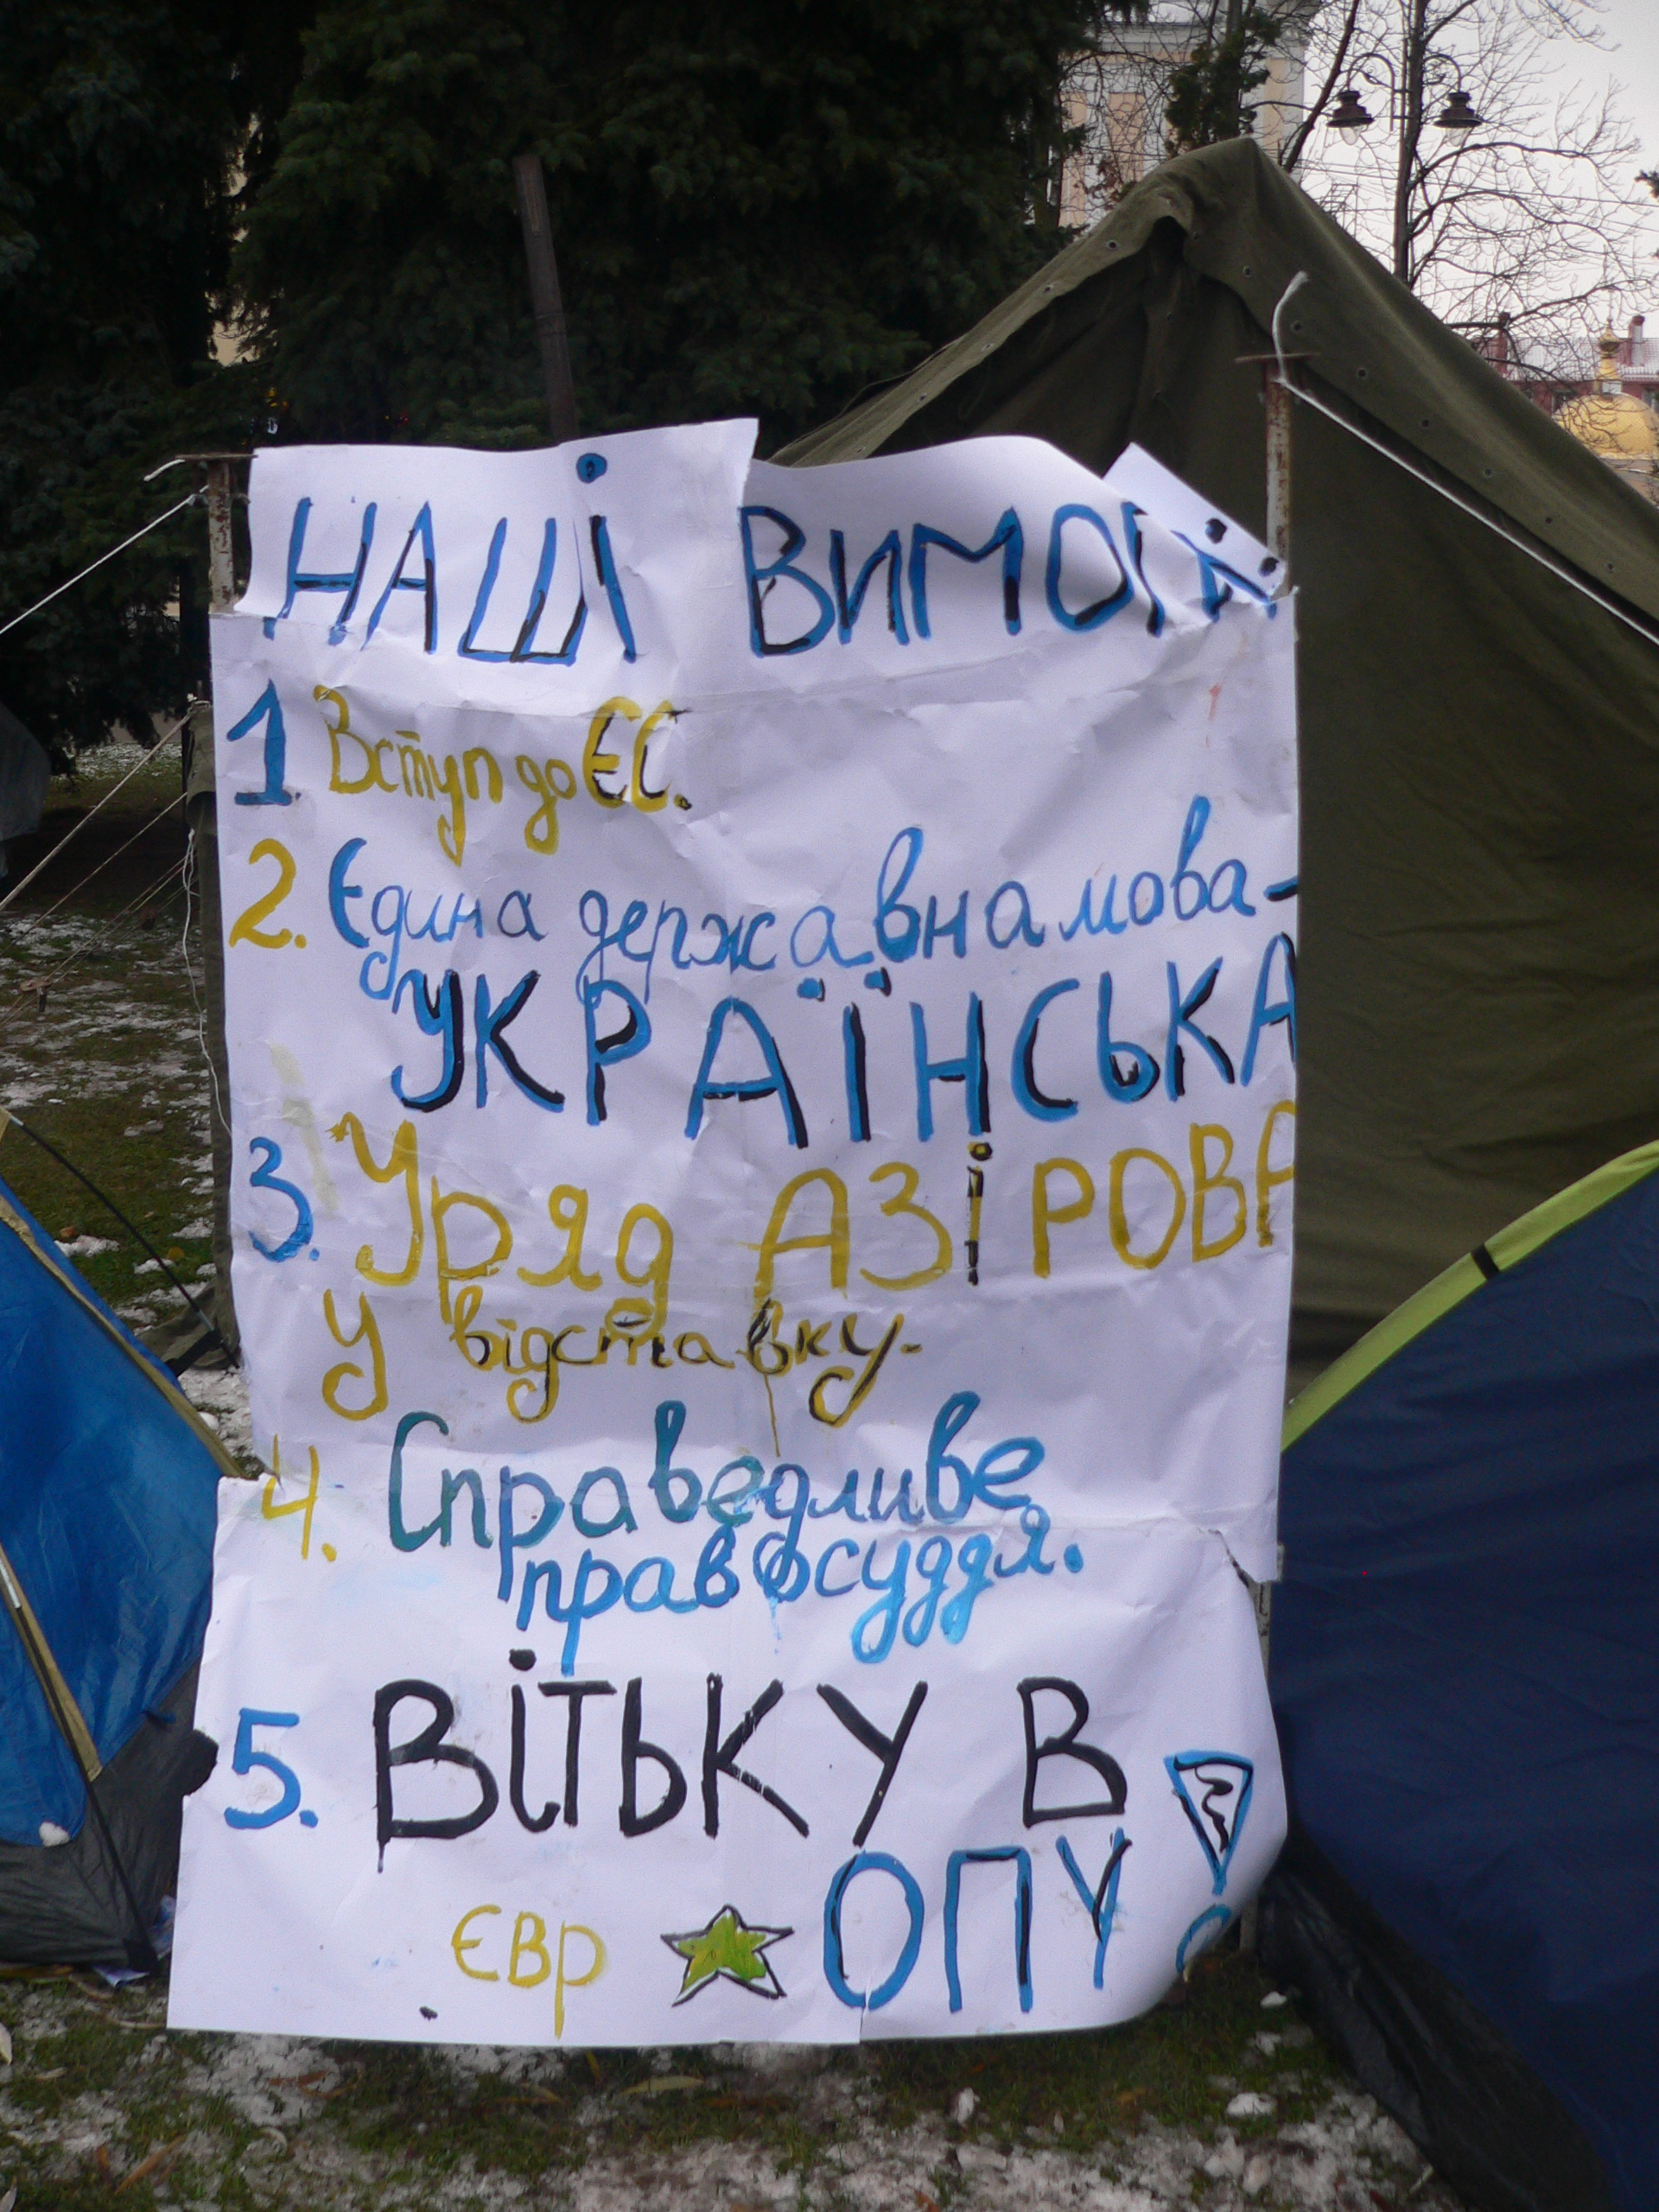 НАШі ВИМОГИ
1. Вступ до ЄС.
2. Єдина державна мова-
УКРАЇНСЬКА
3. Уряд АЗіРОВА
у відставку.
4. Справедливе
правосуддя.
5. ВіТЬКУ В
ЄВР ОПУ